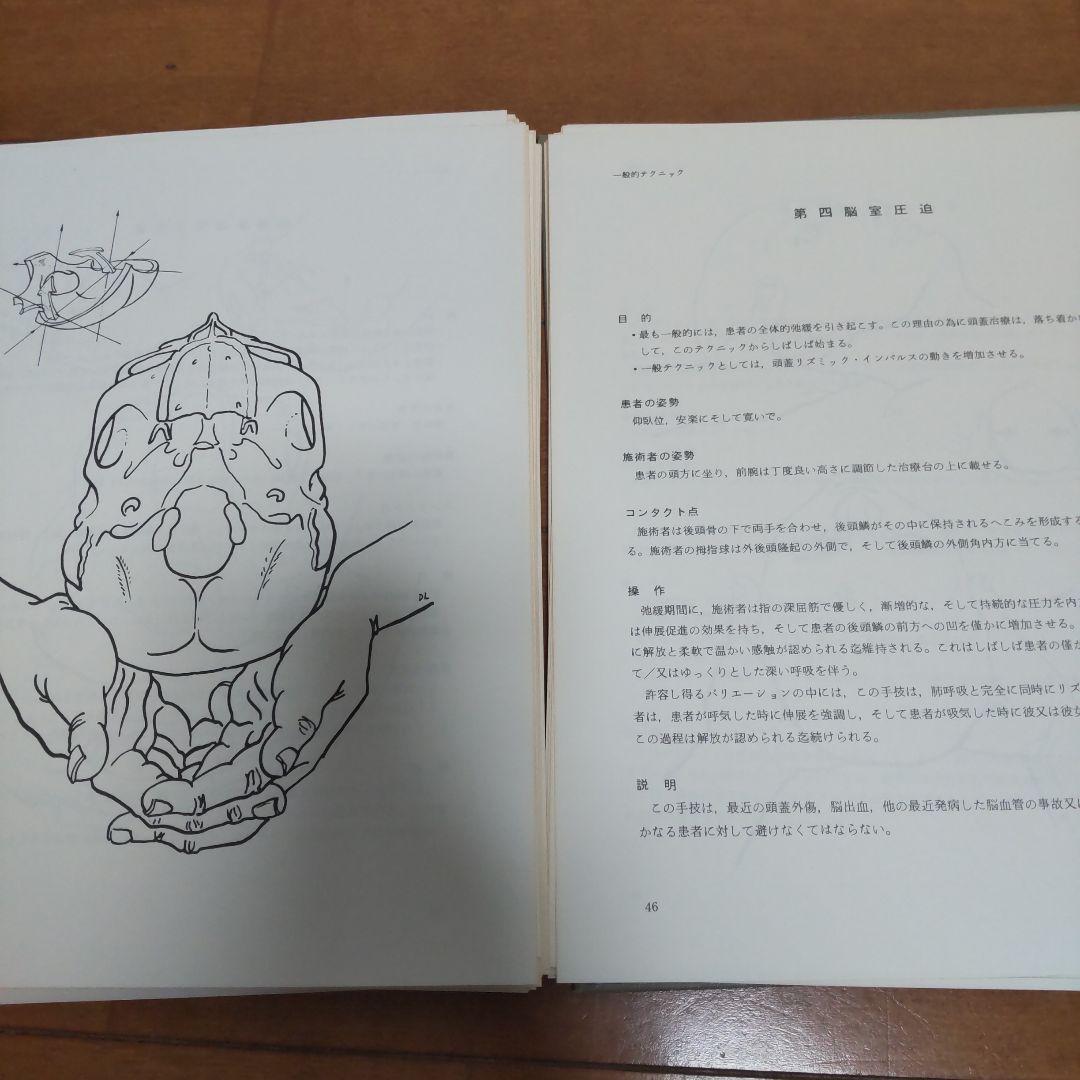 DL
一般的テクニック
第四脳室圧迫
目 的
・最も一般的には，患者の全体的弛緩を引き起こす。この理由の為に頭蓋治療は，落ち着か
して，このテクニックからしばしば始まる。
・一般テクニックとしては，頭蓋リズミック・インパルスの動きを増加させる。
患者の姿勢
仰臥位，安楽にそして寛いで。
施術者の姿勢
患者の頭方に坐り，前腕は丁度良い高さに調節した治療台の上に載せる。
コンタクト点
施術者は後頭骨の下で両手を合わせ，後頭鱗がその中に保持されるへこみを形成する
る。施術者の拇指球は外後頭隆起の外側で，そして後頭鱗の外側角内方に当てる。
操 作
弛緩期間に，施術者は指の深屈筋で優しく，漸増的な，そして持続的な圧力を内
は伸展促進の効果を持ち，そして患者の後頭鱗の前方への凹を僅かに増加させる。
に解放と柔軟で温かい感触が認められる迄維持される。これはしばしば患者の僅か
て／又はゆっくりとした深い呼吸を伴う。
許容し得るバリエーションの中には，この手技は，肺呼吸と完全に同時にリズ
者は，患者が呼気した時に伸展を強調し，そして患者が吸気した時に彼又は彼女
この過程は解放が認められる迄続けられる。
説 明
この手技は，最近の頭蓋外傷，脳出血，他の最近発病した脳血管の事故又は
かなる患者に対して避けなくてはならない。
46